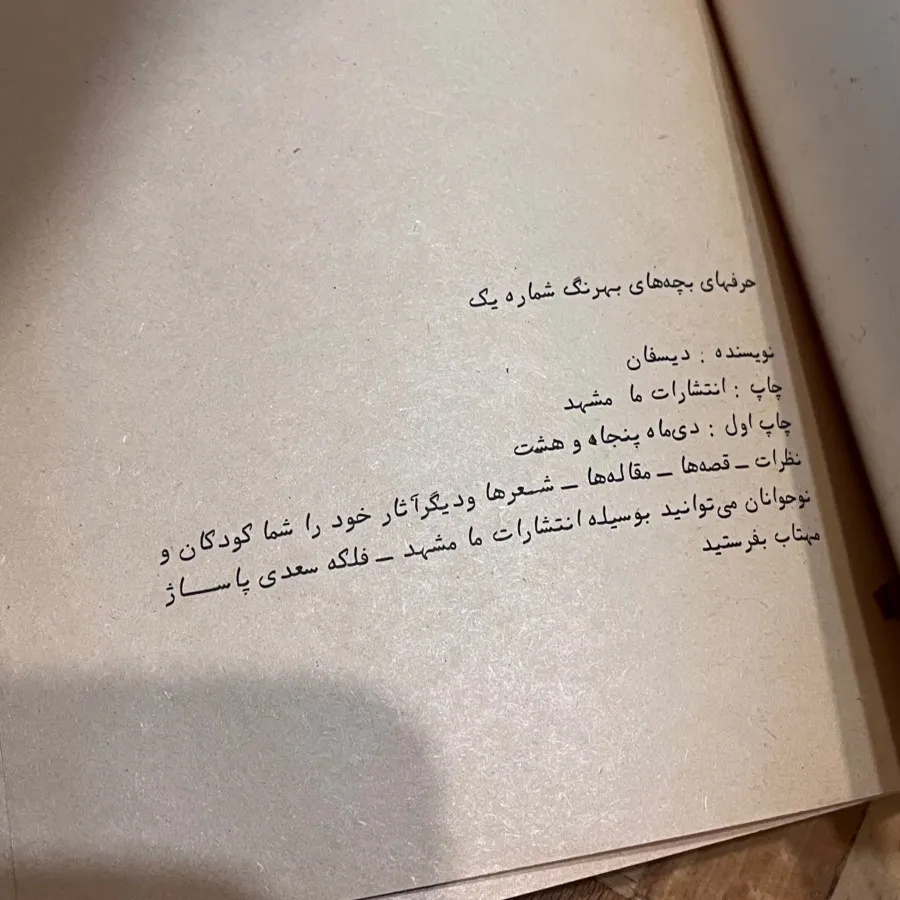 حرفهای بچه‌های بهرنگ شماره یک
نویسنده : دیسفان
چاپ : انتشارات ما مشهد
چاپ اول : دی‌ماه پنجاه و هشت
نظرات – قصه‌ها – مقاله‌ها – شعرها ودیگرآثار خود را شما کودکان و
نوجوانان می‌توانید بوسیله انتشارات ما مشهد – فلکه سعدی پاساژ
مهتاب بفرستید